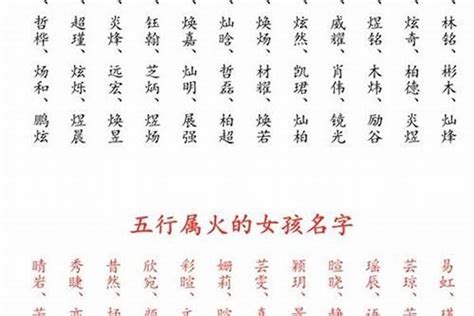 哲桦、超瑾、炎烽、钰翰、焕嘉、灿晗、焕炀、炫然、威耀、煜铭、炫奇、林铭、
炀和、炫烁、远宏、芝炳、灿明、哲磊、材耀、凯珺、肖伟、木炜、柏德、彬木、
鹏炫 煜晨 焕昱 煜炀 展强 柏超 焕若 灿柏 镜光 励谷 炎煜 灿烽
五行属火的女孩名字
晴岩、秀睫、昔然、欣宛、彩暄、姗莉、芸雯、颖玥、暄晓、瑶辰、芸琼、易虹、